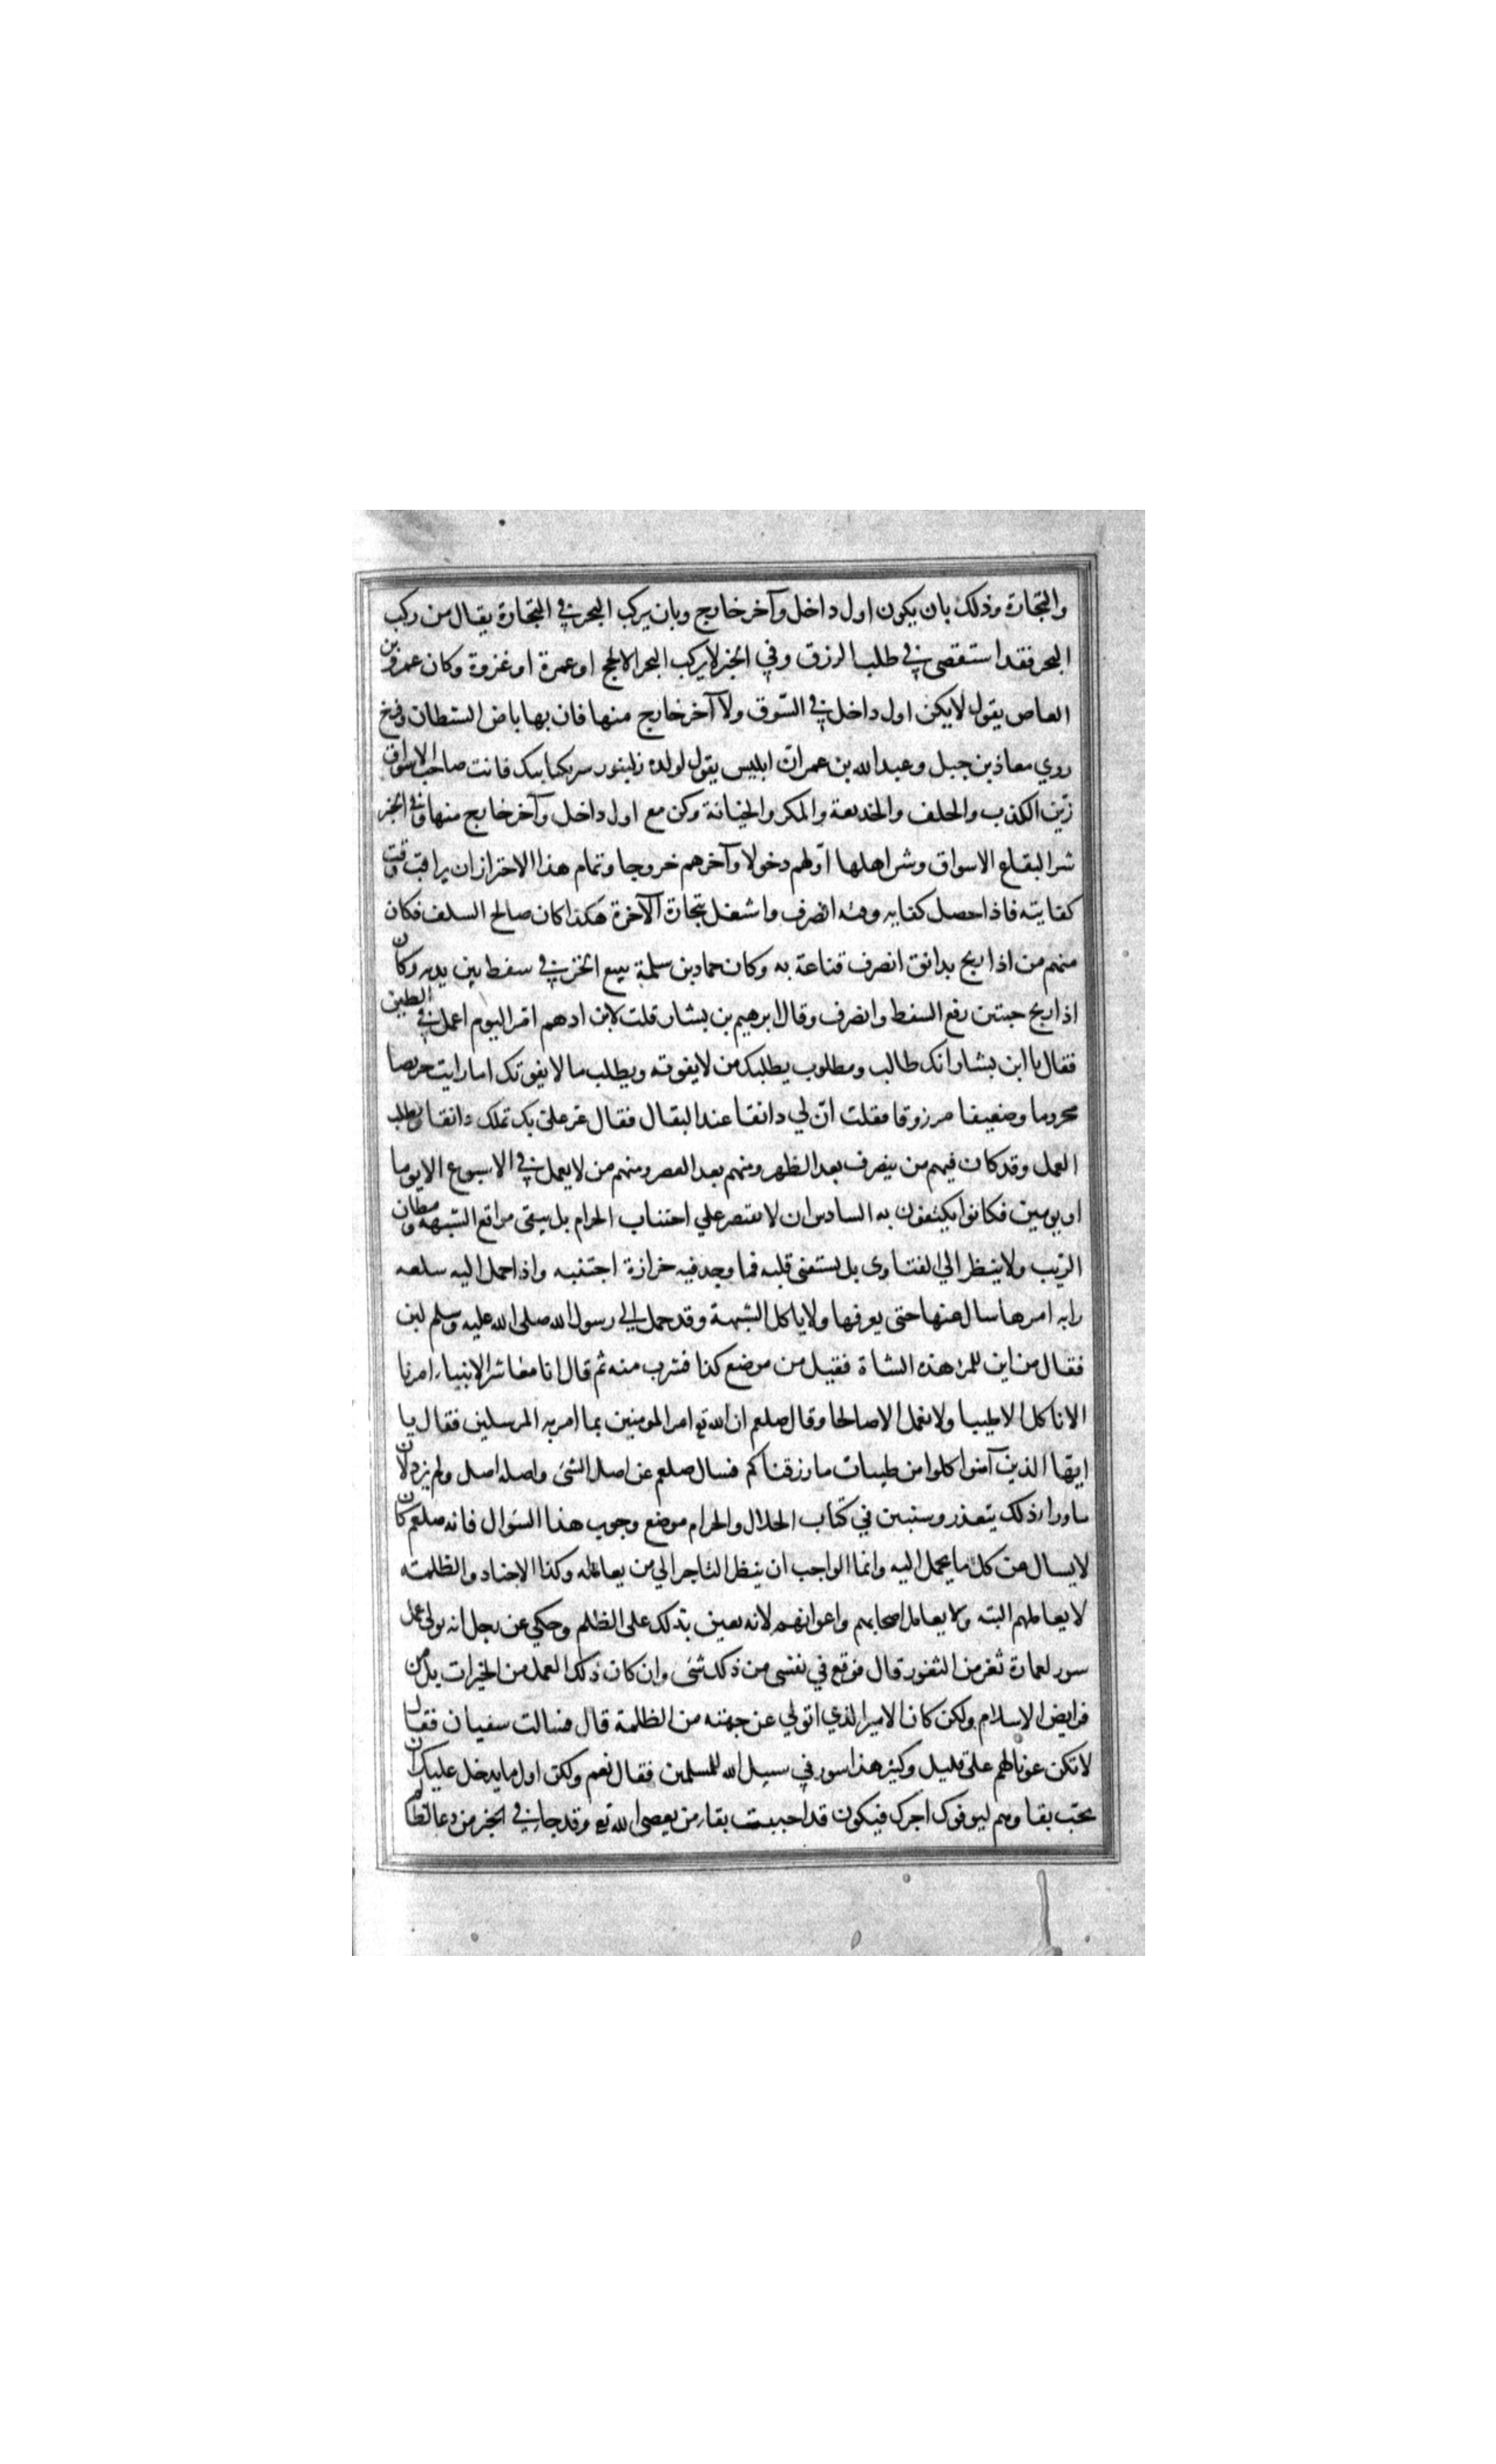 والتجارة وذلك بان يكون اول داخل وآخر خارج وبان يركب البحر في التجارة يقال من ركب
البحر فقد استقصى في طلب الرزق وفي الخبر لا يركب البحر الا لحج او عمرة او غزوة وكان عمرو بن
العاص يقول لا يكن اول داخل في السّوق ولا آخر خارج منها فان بها باض الشطان وفرخ
روي معاذ بن جبل وعبد الله بن عمر ان ابليس يقول لولده زلينور سر بكتابيك فانت صاحب الاسواق
زيّن الكذب والحلف والخديعة والمكر والخيانة وكن مع اول داخل وآخر خارج منها وفي الخبر
شر البقاع الاسواق وشر اهلها اوّلهم دخولا وآخرهم خروجا وتمام هذا الاحتراز ان يراقب وقت
كفايته فاذا حصل كفاية وقته انصرف واشغل بتجارة الآخرة هكذا كان صالح السلف فكان
منهم من اذا ربح بدانق انصرف قناعة به وكان حماد بن سلمة يبيع الخز في سفط بين يديه وكان
اذا ربح حبتين رفع السفط وانصرف وقال ابرهيم بن بشار قلت لابن ادهم امر اليوم اعمل في الطين
فقال يا ابن بشار انك طالب ومطلوب يطلبك من لا يفوته ويطلب ما لا يفوتك اما رايت حريصا
محروما وضعيفا مرزوقا فقلت انّ لي دانقا عند البقال فقال عز عليّ بك تملك دانقا وتطلب
العمل وقد كان فيهم من ينصرف بعد الظهر ومنهم بعد العصر ومنهم من لا يعمل في الاسبوع الا يوما
او يومين فكانوا يكتفون به السادس ان لا يقتصر علي اجتناب الحرام بل يتقى مواقع الشبهة ومظان
الرّيب ولا ينظر الي الفتاوى بل يستفتى قلبه فما وجد فيه حزازة اجتنبه واذا حمل اليه سلعه
رابه امرها سال عنها حتى يعرفها ولا ياكل الشبهة وقد حمل الي رسول الله صلى الله عليه وسلم لبن
فقال من اين لكم هذه الشاة فقيل من موضع كذا فشرب منه ثم قال انا معاشر الانبياء امرنا
الا ناكل الا طيبا ولا نعمل الا صالحا وقال صلعم ان الله تع امر المومنين بما امر به المرسلين فقال يا
ايّها الذين آمنوا كلوا من طيبات ما رزقناكم فسال صلعم عن اصل الشئ واصله اصل ولم يزد لان
ما وراء ذلك يتعذر وسنبين في كتاب الحلال والحرام موضع وجوب هذا السّوال فانه صلعم كان
لا يسال عن كل ما يحمل اليه وانما الواجب ان ينظر التاجر الي من يعامله وكذا الاجناد والظلمة
لا يعاملهم البته ولا يعامل اصحابهم واعوانهم لانه يعين بذلك على الظلم وحكي عن رجل انه تولى عمل
سور لعمارة ثغر من الثغور قال فوقع في نفسى من ذلك شئ وان كان ذلك العمل من الخيرات بل من
فرايض الاسلام ولكن كان الامير الذي اتولي عن جهته من الظلمة قال فسالت سفيان فقال
لا تكن عونا لهم على قليل وكثير هذا سور في سبيل الله للمسلمين فقال نعم ولكن اول ما يدخل عليك ان
تحب بقاوهم ليوفوك اجرك فيكون قد احببت بقاء من يعصى الله تع وقد جا في الخبر من دعا لظالم